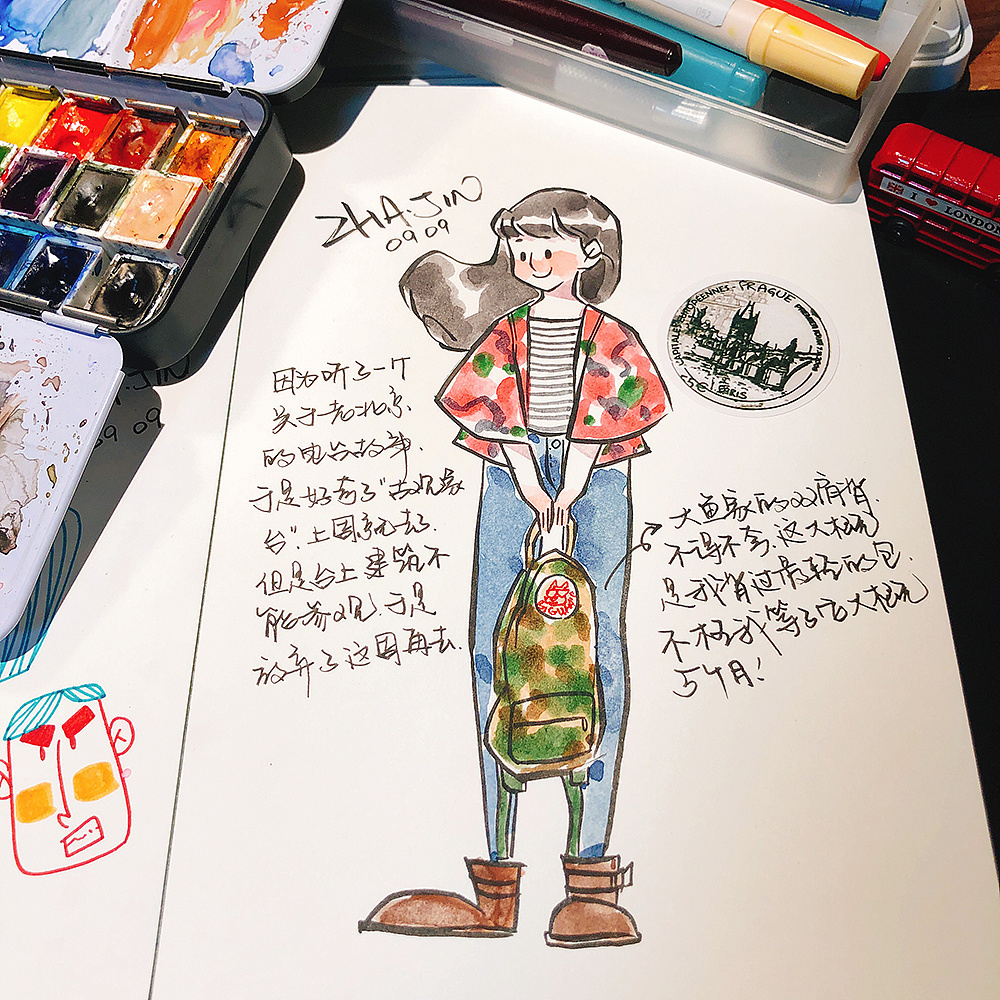 ZHA.JIN
09 09
因为听了一个
关于老北京
的电台故事
于是好奇了“古观象
台”上周就去了
但是台上建筑不
能参观.于是
放弃了这周再去.
大鱼家的双肩背.
不得不夸.这大概
是我背过最轻的包.
我等了它大概
5个月!
PRAGUE
I ♥ LONDON
JIN
09 09